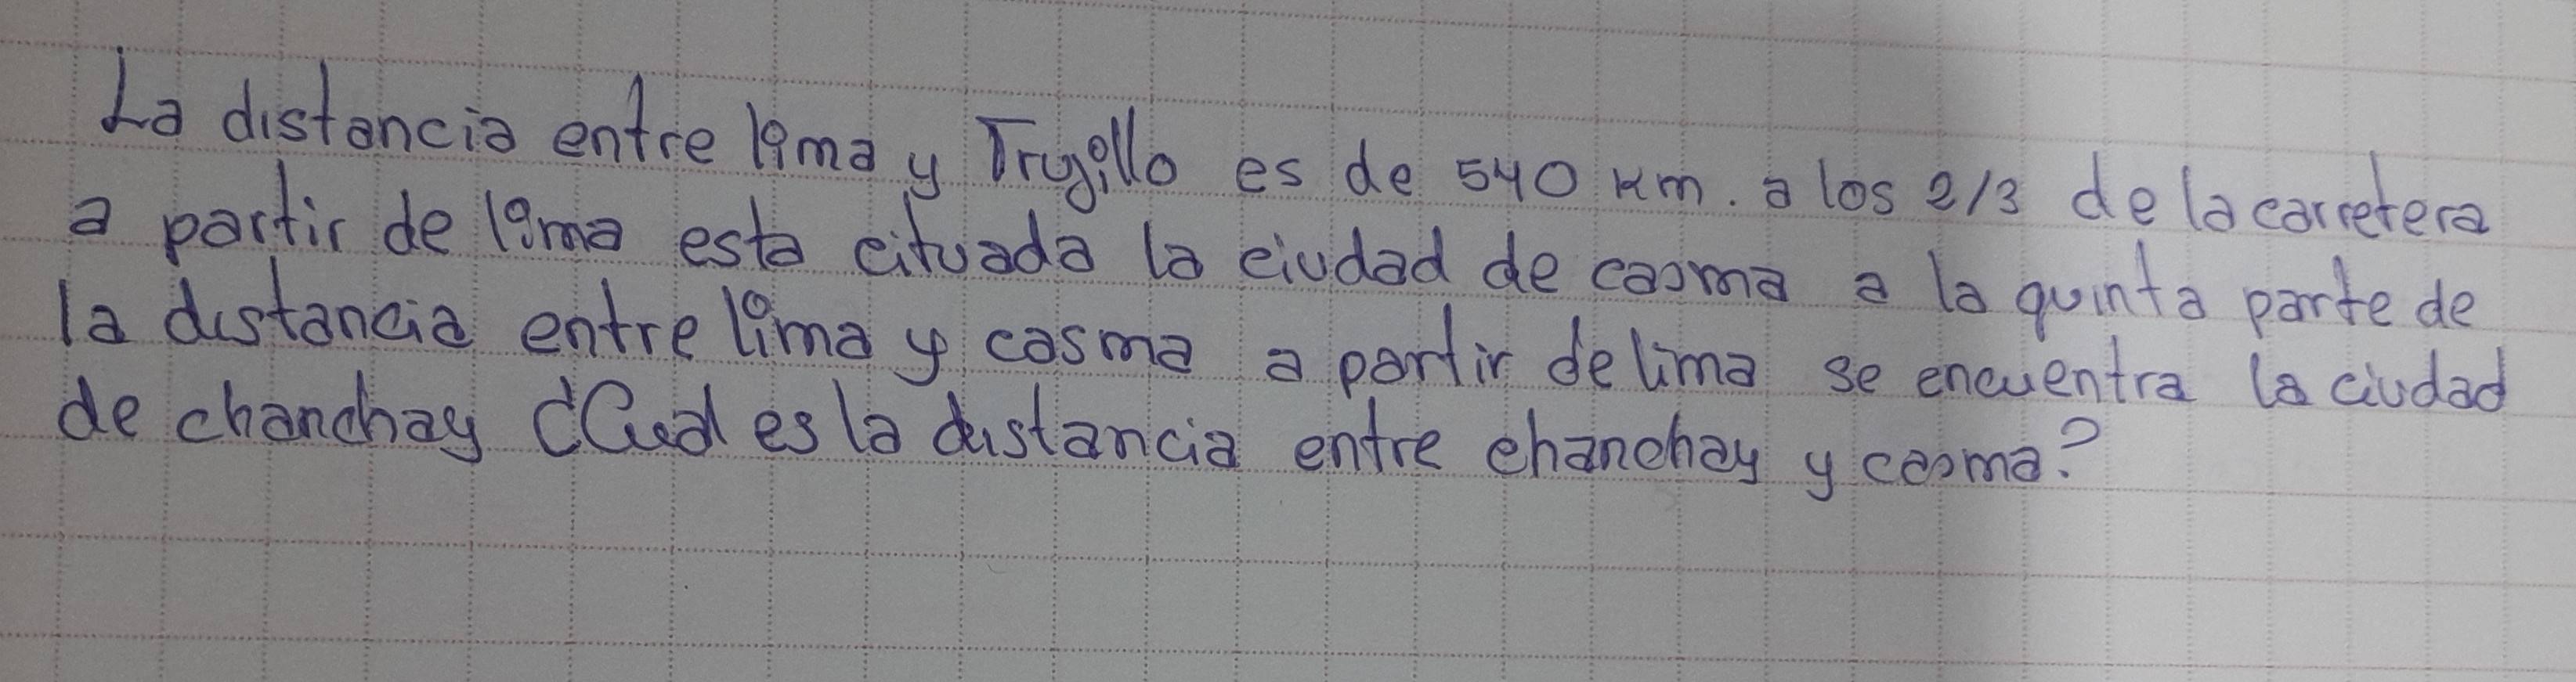 La distancia entre lima y Trujillo es de 540 Km. a los 2/3 de la carretera
a partir de lima esta cituada la ciudad de casma a la quinta parte de
la distancia entre lima y casma a partir de lima se encuentra la ciudad
de chanchay ¿Cual es la distancia entre chanchay y casma?